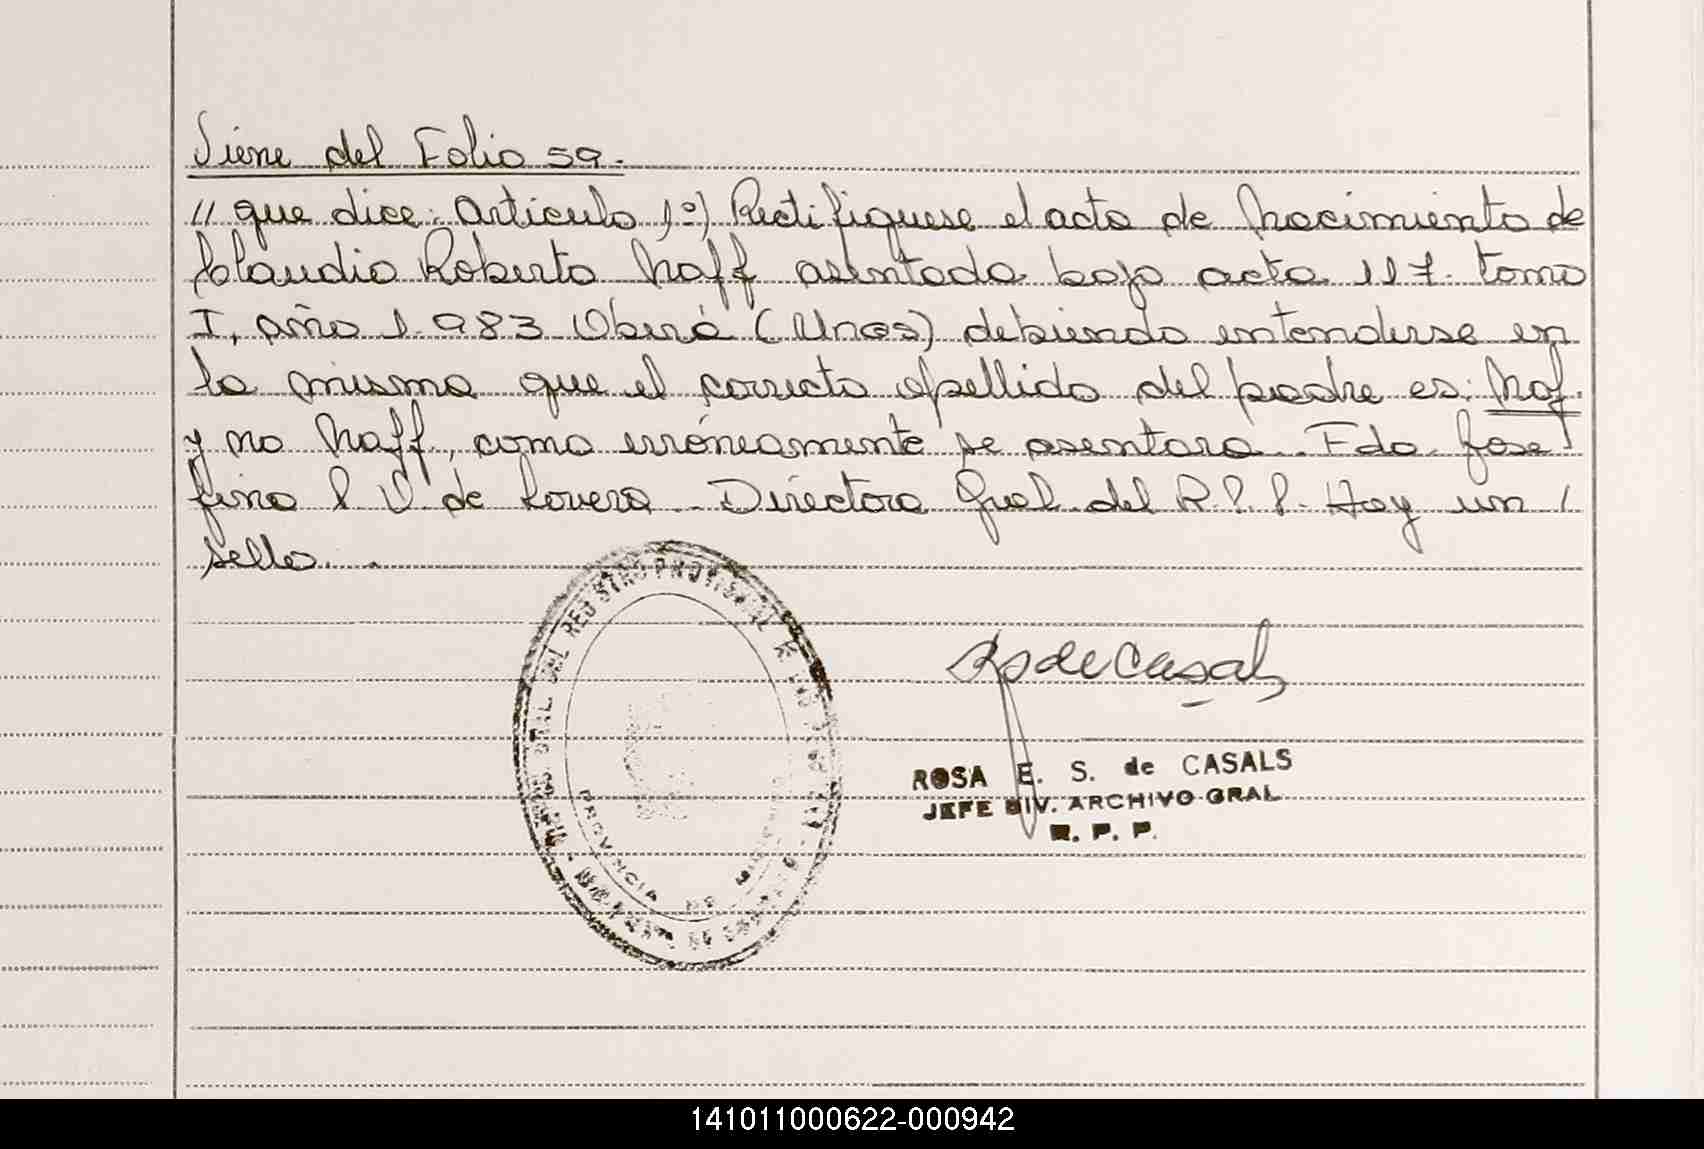 Viene del Folio 59.
// que dice: Artículo 1º) Rectifiquese el acta de Nacimiento de
Claudio Roberto Naff asentada bajo acta 117. tomo
I, año 1.983 Oberá (Mnes) debiendo entenderse en
la misma que el correcto apellido del padre es: Naf.
y no Naff, como erróneamente se asentara.. Fdo. Jose
fina l V. de Lovera.. Directora Gral. del R.P.P. Hay un /
sello...
REGISTRO PROVINCIAL
PROVINCIA DE MISIONES
RSdeCasals
ROSA E. S. de CASALS
JEFE DIV. ARCHIVO GRAL
R. P. P.
141011000622-000942